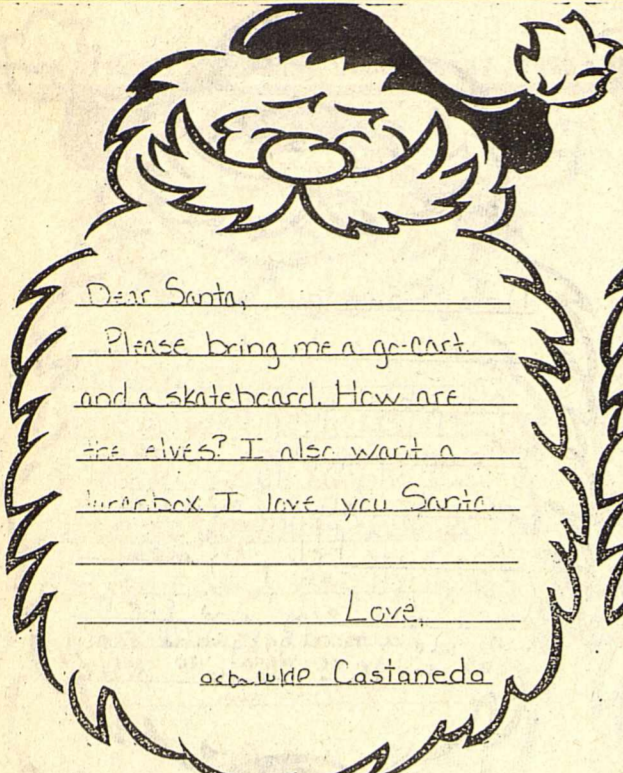 Dear Santa,
Please bring me a go-cart
and a skateboard. How are
the elves? I also want a
I love you Santa.
Love,
Castaneda